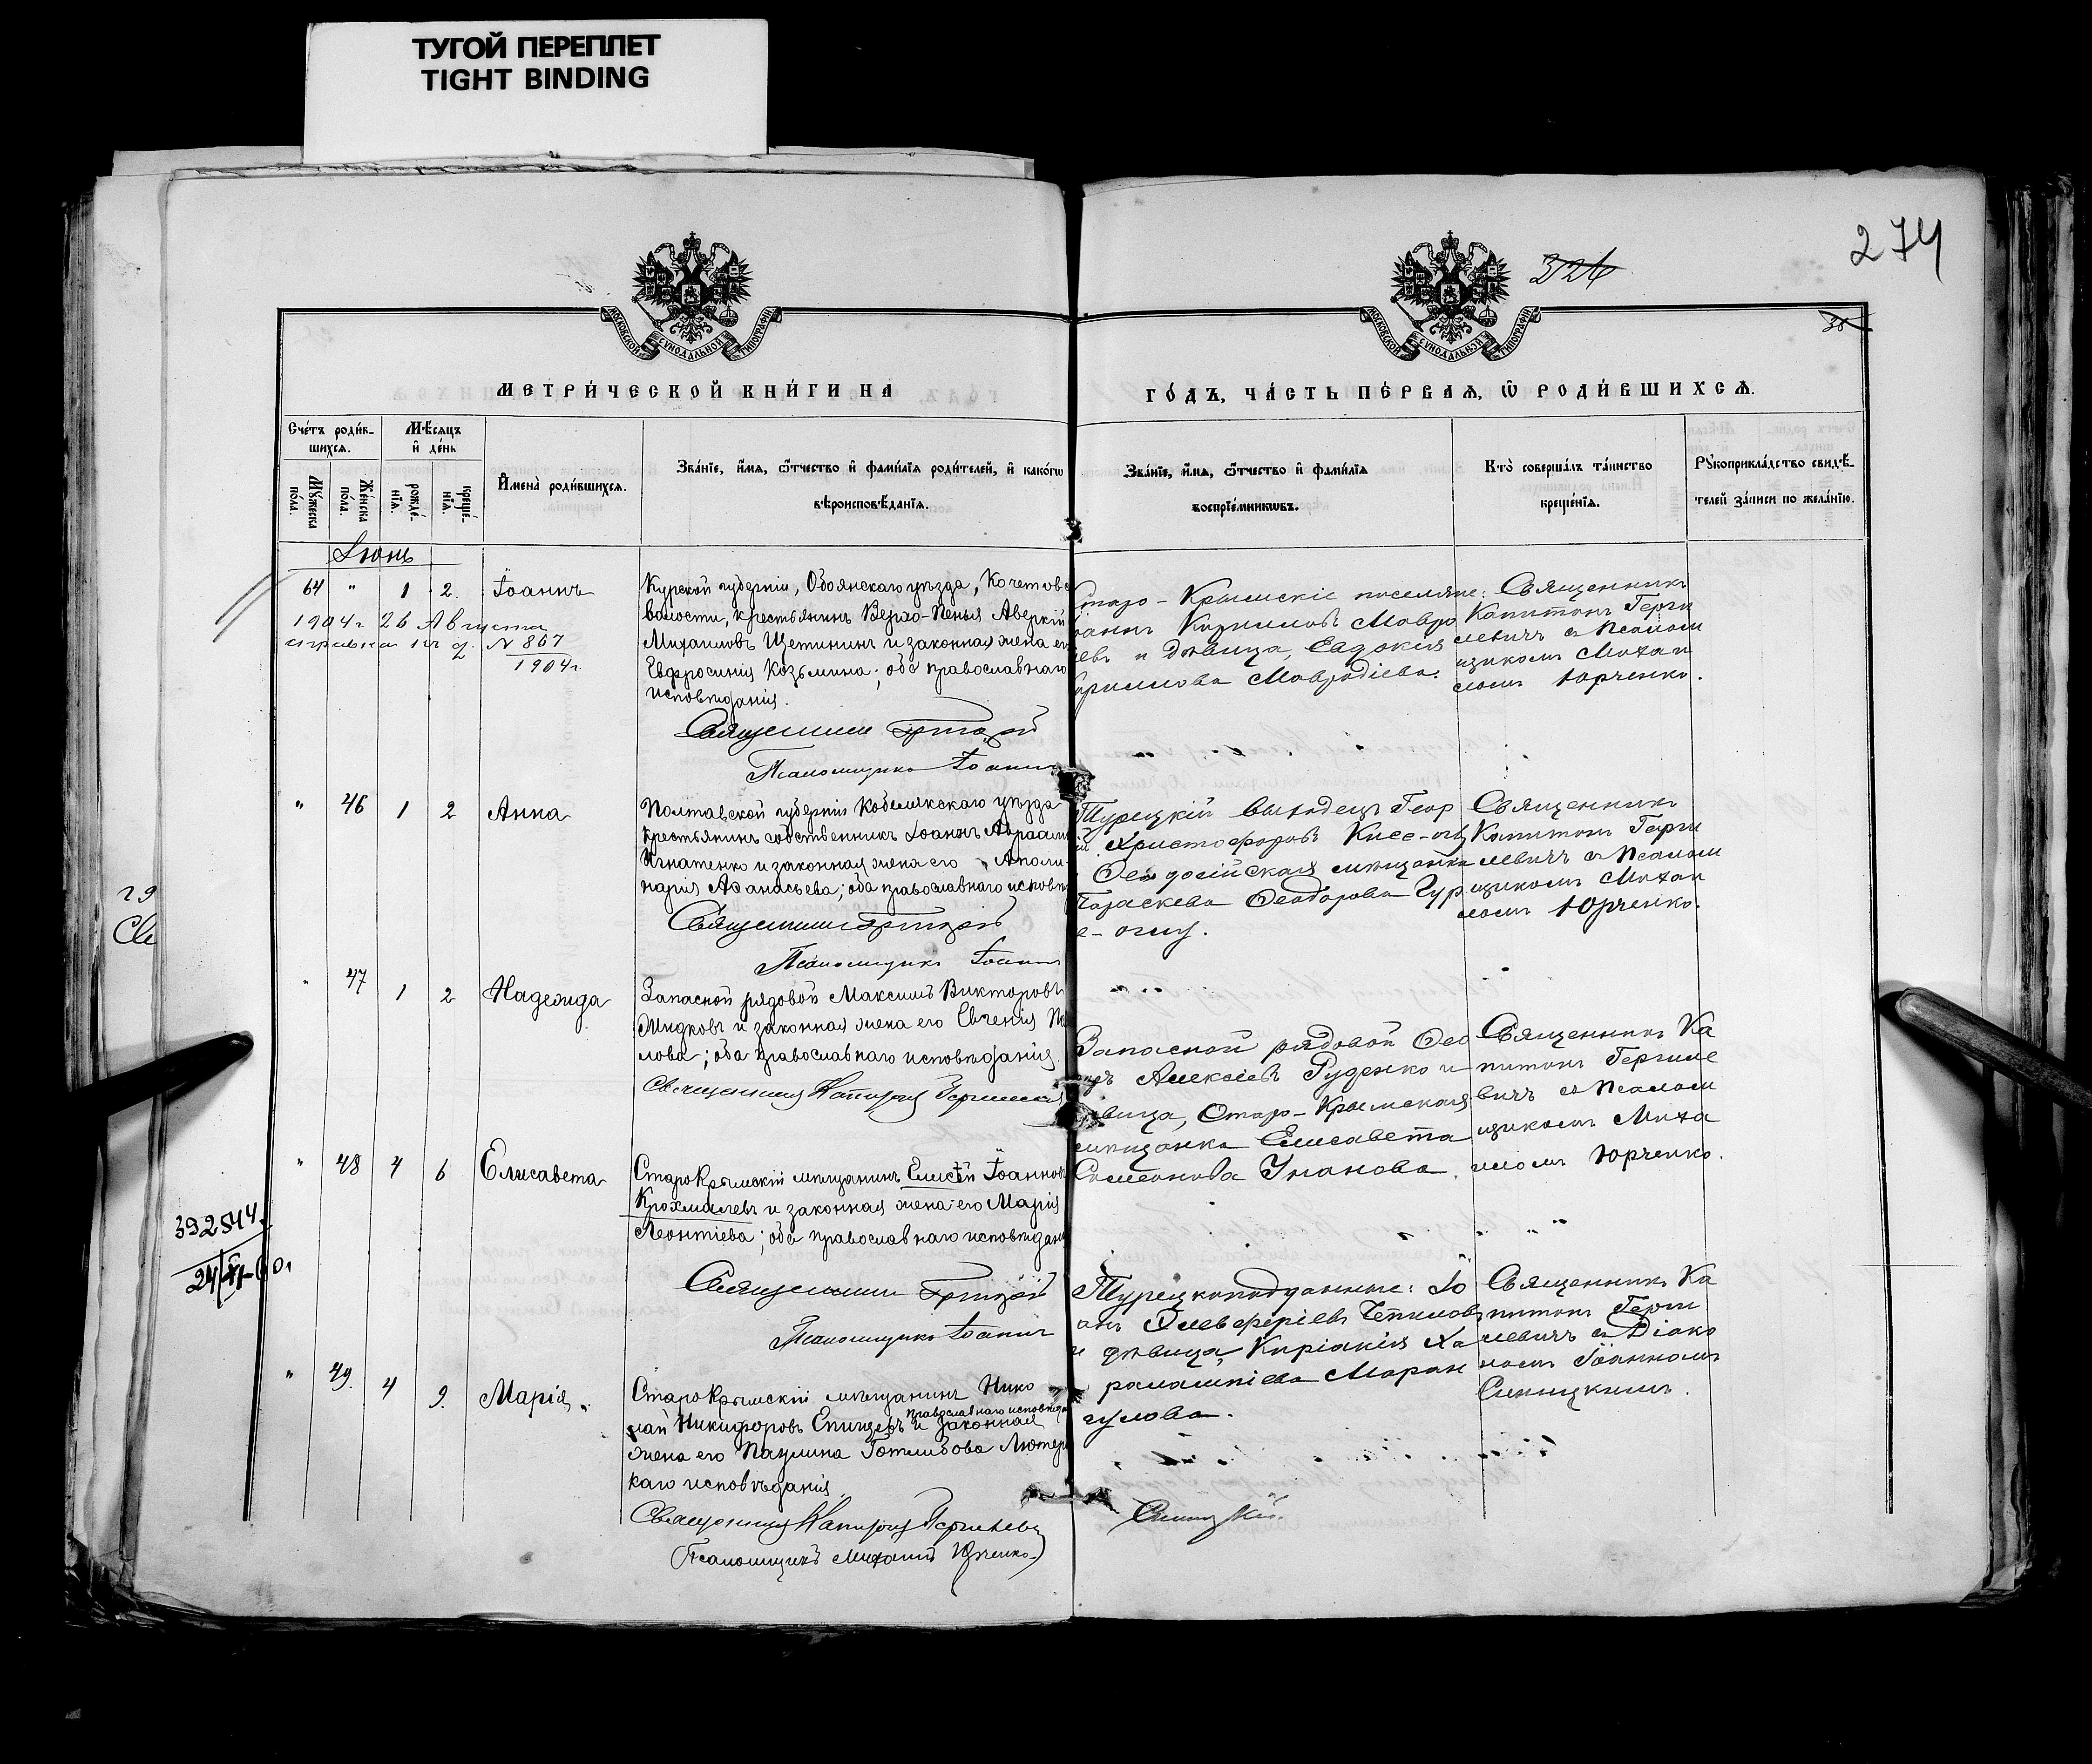 ТУГОЙ ПЕРЕПЛЕТ
TIGHT BINDING
274
326
36
МОСКОВСКОЙ СУНОДАЛЬНОЙ ТИПОГРАФІИ
МОСКОВСКОЙ СУНОДАЛЬНОЙ ТИПОГРАФІИ
МЕТРИ́ЧЕСКОЙ КНИ́ГИ НА
ГО́ДЪ, ЧА́СТЬ ПЕ́РВАѦ, Ѿ РОДИ́ВШИХСѦ.
Сче́тъ роди́в-
шихсѧ.
Мѣ́сѧцъ
и҆ де́нь
Мꙋ́жеска
по́ла.
Же́нска
по́ла.
рожде́-
нїѧ.
креще́-
нїѧ.
И҆мена̀ роди́вшихсѧ.
Зва́нїе, и҆́мѧ, ѻ҆́тчество и҆ фами́лїѧ роди́телей, и҆ како́гѡ
вѣроисповѣ́данїѧ.
Зва́нїе, и҆́мѧ, ѻ҆́тчество и҆ фами́лїѧ
воспрїе́мникѡвъ.
Кто̀ соверша́лъ та́инство
креще́нїѧ.
Рꙋкоприкла́дство свидѣ́-
телей за́писи по жела́нїю.
Іюнь
64 " 1 2. Іоаннъ
1904 г. 26 Августа
справка
N 867
1904 г.
Курской губерніи, Обоянскаго уѣзда, Кочетов
волости, крестьянинъ Верхо-Пенья Аверкій
Михаиловъ Щетининъ и законная жена ег
Евфросинія Козьмина; оба православнаго
исповѣданія.
Священник
Псаломщикъ Іоаннъ
Старо-Крымскіе поселяне:
оаннъ Кирилловъ Мавро
евъ и дѣвица, Евдокія
ириллова Мавродіева.
Священникъ
Капитонъ Герги
левичъ съ Псалом
щикомъ Михаи
ломъ Юрченко.
" 46 1 2 Анна
Полтавской губерніи Кобелякскаго уѣзда
крестьянинъ собственникъ Іоаннъ Авраам
Игнатенко и законная жена его Аполи
нарія Аѳанасьева; оба православнаго исповѣ
Священник
Псаломщикъ Іоаннъ
Турецкій выходецъ Геор
й Христофоровъ Кисе-оглу
Ѳеодосійская мѣщанка
Параскева Ѳеодорова Гур
е-оглу.
Священникъ
Капитонъ Герги
левичъ съ Псалом
щикомъ Михаи
ломъ Юрченко.
" 47 1 2 Надежда
Запасной рядовой Максимъ Викторовъ
Жидковъ и законная жена его Евгенія Па
лова; оба православнаго исповѣданія.
Священникъ Капитонъ Гергилевичъ
Запасной рядовой Ѳео
оръ Алексіевъ Руденко и
ѣвица, Старо-Крымская
мѣщанка Елисавета
Симеонова Уманова.
Священникъ Ка
питонъ Гергиле
вичъ съ Псалом
щикомъ Миха
иломъ Юрченко.
" 48 4 6 Елисавета
392544
Старокрымскій мѣщанинъ Елисѣй Іоаннов
Крохмалевъ и законная жена его Марія
Леонтіева; оба православнаго исповѣдані
Священник
Псаломщикъ Іоаннъ
Турецкоподданные: Іо
анъ Элевферіевъ
и дѣвица, Киріакія Ха
рлампіева Маран
гулова.
Священникъ Ка
питонъ Герги
левичъ съ Діако
номъ Іоанномъ
Синицкимъ.
" 49. 4 9. Марія
Старокрымскій мѣщанинъ Нико
православнаго исповѣда
лай Никифоровъ Епищевъ и законная
жена его Паулина Готлибова Лютер
каго исповѣданія
Священникъ Капитонъ Гергилевичъ
Псаломщикъ Михаилъ Юрченко
Синицкій.